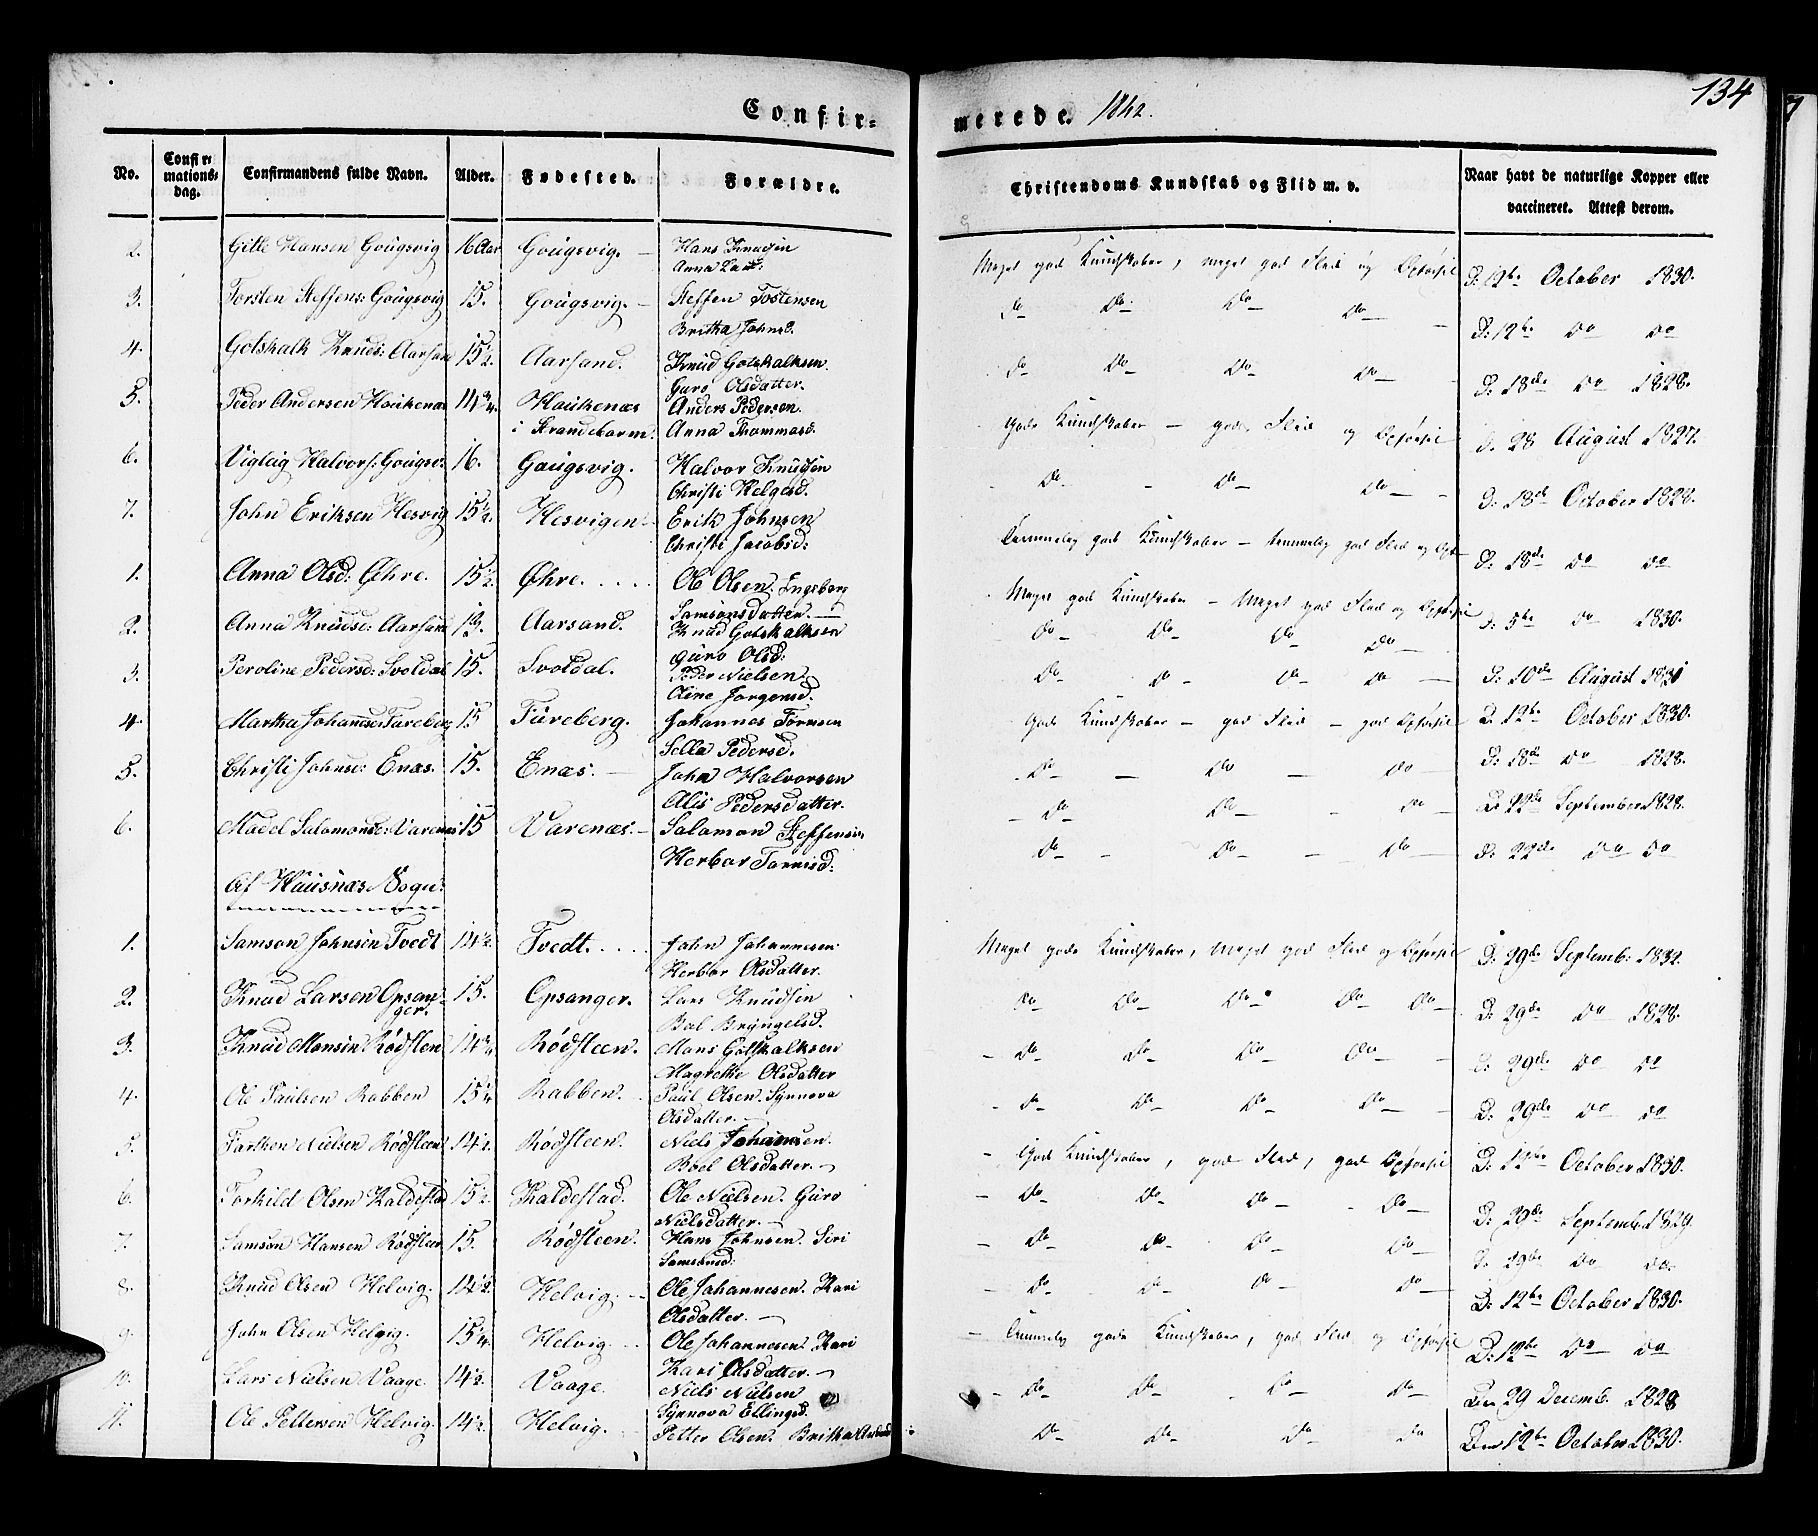 134
Confir- merede. 1842.
No. Confirmations-dag. Confirmandens fulde Navn. Alder. Fødested. Forældre. Christendoms Kundskab og Flid m. v. Naar havt de naturlige Kopper eller vaccineret. Attest derom.
2. Gitle Hansen Gougsvig 16 Aar Gougsvig. Hans Knudsen Meget god Kundskaber, meget god Flid og Opførsel D: 19de October 1830.
Anna
3. Torsten Steffens: Gougsvig 15. Gougsvig. Steffen Tostensen Do Do Do Do D: 12te Do Do
Britha Johnsd.
4. Gotskalk Knuds: Aarsand 15½. Aarsand. Knud Gotskalksen Do Do Do Do D: 18de Do 1828.
Guro Olsdatter.
5. Peder Andersen Haukenæs 14¾. Haukenæs Anders Pedersen. Gode Kundskaber – gode Flid og Opførsel D: 28 August 1827.
i Strandebarm. Anna Thommasd.
6. Vigleig Halvors: Gougsv: 16. Gaugsvig. Halvor Knudsen Do Do Do D: 18de October 1828.
Christi Helgesd.
7. John Eriksen Hesvig 15½. Hesvigen Erik Johnsen Temmelig god Kundskaber – temmelig god Flid og Opf D: 18de Do Do
Christi Jacobsd:
1. Anna Olsd: Øhre. 15½. Øhre. Ole Olsen. Ingeborg Meget god Kundskaber – Meget god Flid og Opførsel D: 5te Do 1830.
Samsonsdatter.
2. Anna Knudsd: Aarsand Aarsand. Knud Gotskalksen Do Do Do Do
Guro Olsd:
3. Peroline Pedersd: Svoldal 15. Svoldal. Peder Nielsen Do Do Do Do D: 10de August 1831
Oline Jørgensd.
4. Martha Johannesd: Fureberg 15 Fureberg. Johannes Tormsen Gode Kundskaber – god Flid – god Opførsel D: 12te October 1830.
Sella Pedersd.
5. Christi Johnsd: Enæs. 15. Enæs. John Halvorsen Do Do Do D: 18de Do 1828.
Alis Pedersdatter. Do Do Do D: 22de September 1828.
6. Madel Salomonsd: Varenæs: 15 Varenæs. Salomon Steffensen Do Do Do D: 22de Do Do
Herbor Tormsd:
Af Huusnæs Sogn:
1. Samson Johnsen Tvedt 14½. Tvedt. John Johannesen Meget gode Kundskaber, Meget god Flid og Opførsel D: 29de Septemb: 1832.
Herbor Olsdatter.
2. Knud Larsen Opsan- 15. Opsanger. Lars Knudsen Do Do Do Do Do D: 29de Do 1828.
ger. Bol Bryngelsd.
3. Knud Monsen Rødsteen 14¾ Rødsteen. Mons Gotskalksen Do Do Do Do D: 29de Do Do
Magrethe Olsdatter
4. Ole Paulsen Rabben 15¼ Rabben. Paul Olsen. Synnova Do Do Do Do D: 29de Do Do
Olsdatter.
5. Torsten Nielsen Rødsteen 14½. Rødsteen. Niels Johannsen. God Kundskaber, god Flid, god Opførsel D: 12te October 1830.
Boel Olsdatter.
6. Torkild Olsen Kaldestad 15½. Kaldestad. Ole Nielsen. Guro Do Do Do Do D: 29de Septemb. 1829.
Nielsdatter.
7. Samson Hansen Rødsteen 15. Rødsteen. Hans Johnsen. Siri Do Do Do Do D: 29de Do Do.
Samsonsd:
8. Knud Olsen Helvig. 14½. Helvig. Ole Johannesen. Kari Do Do Do Do D: 12te October 1830.
Olsdatter.
9. John Olsen Helvig. 15¼. Helvig. Ole Johannesen. Kari Temmelig gode Kundskaber, god Flid og Opførsel D: 12te Do Do
Kari Olsdatter.
10. Lars Nielsen Vaage. 14½. Vaage. Niels Nielsen Do Do Do Do Den 29 Decemb. 1828
Synnova Ellingsd.
11. Ole Pettersen Helvig. 14½. Helvig. Petter Olsen. Britha Do Do Do Do Den 12te October 1830.